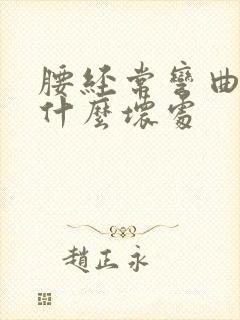 腰經常彎曲
什麼壞處
趙正永